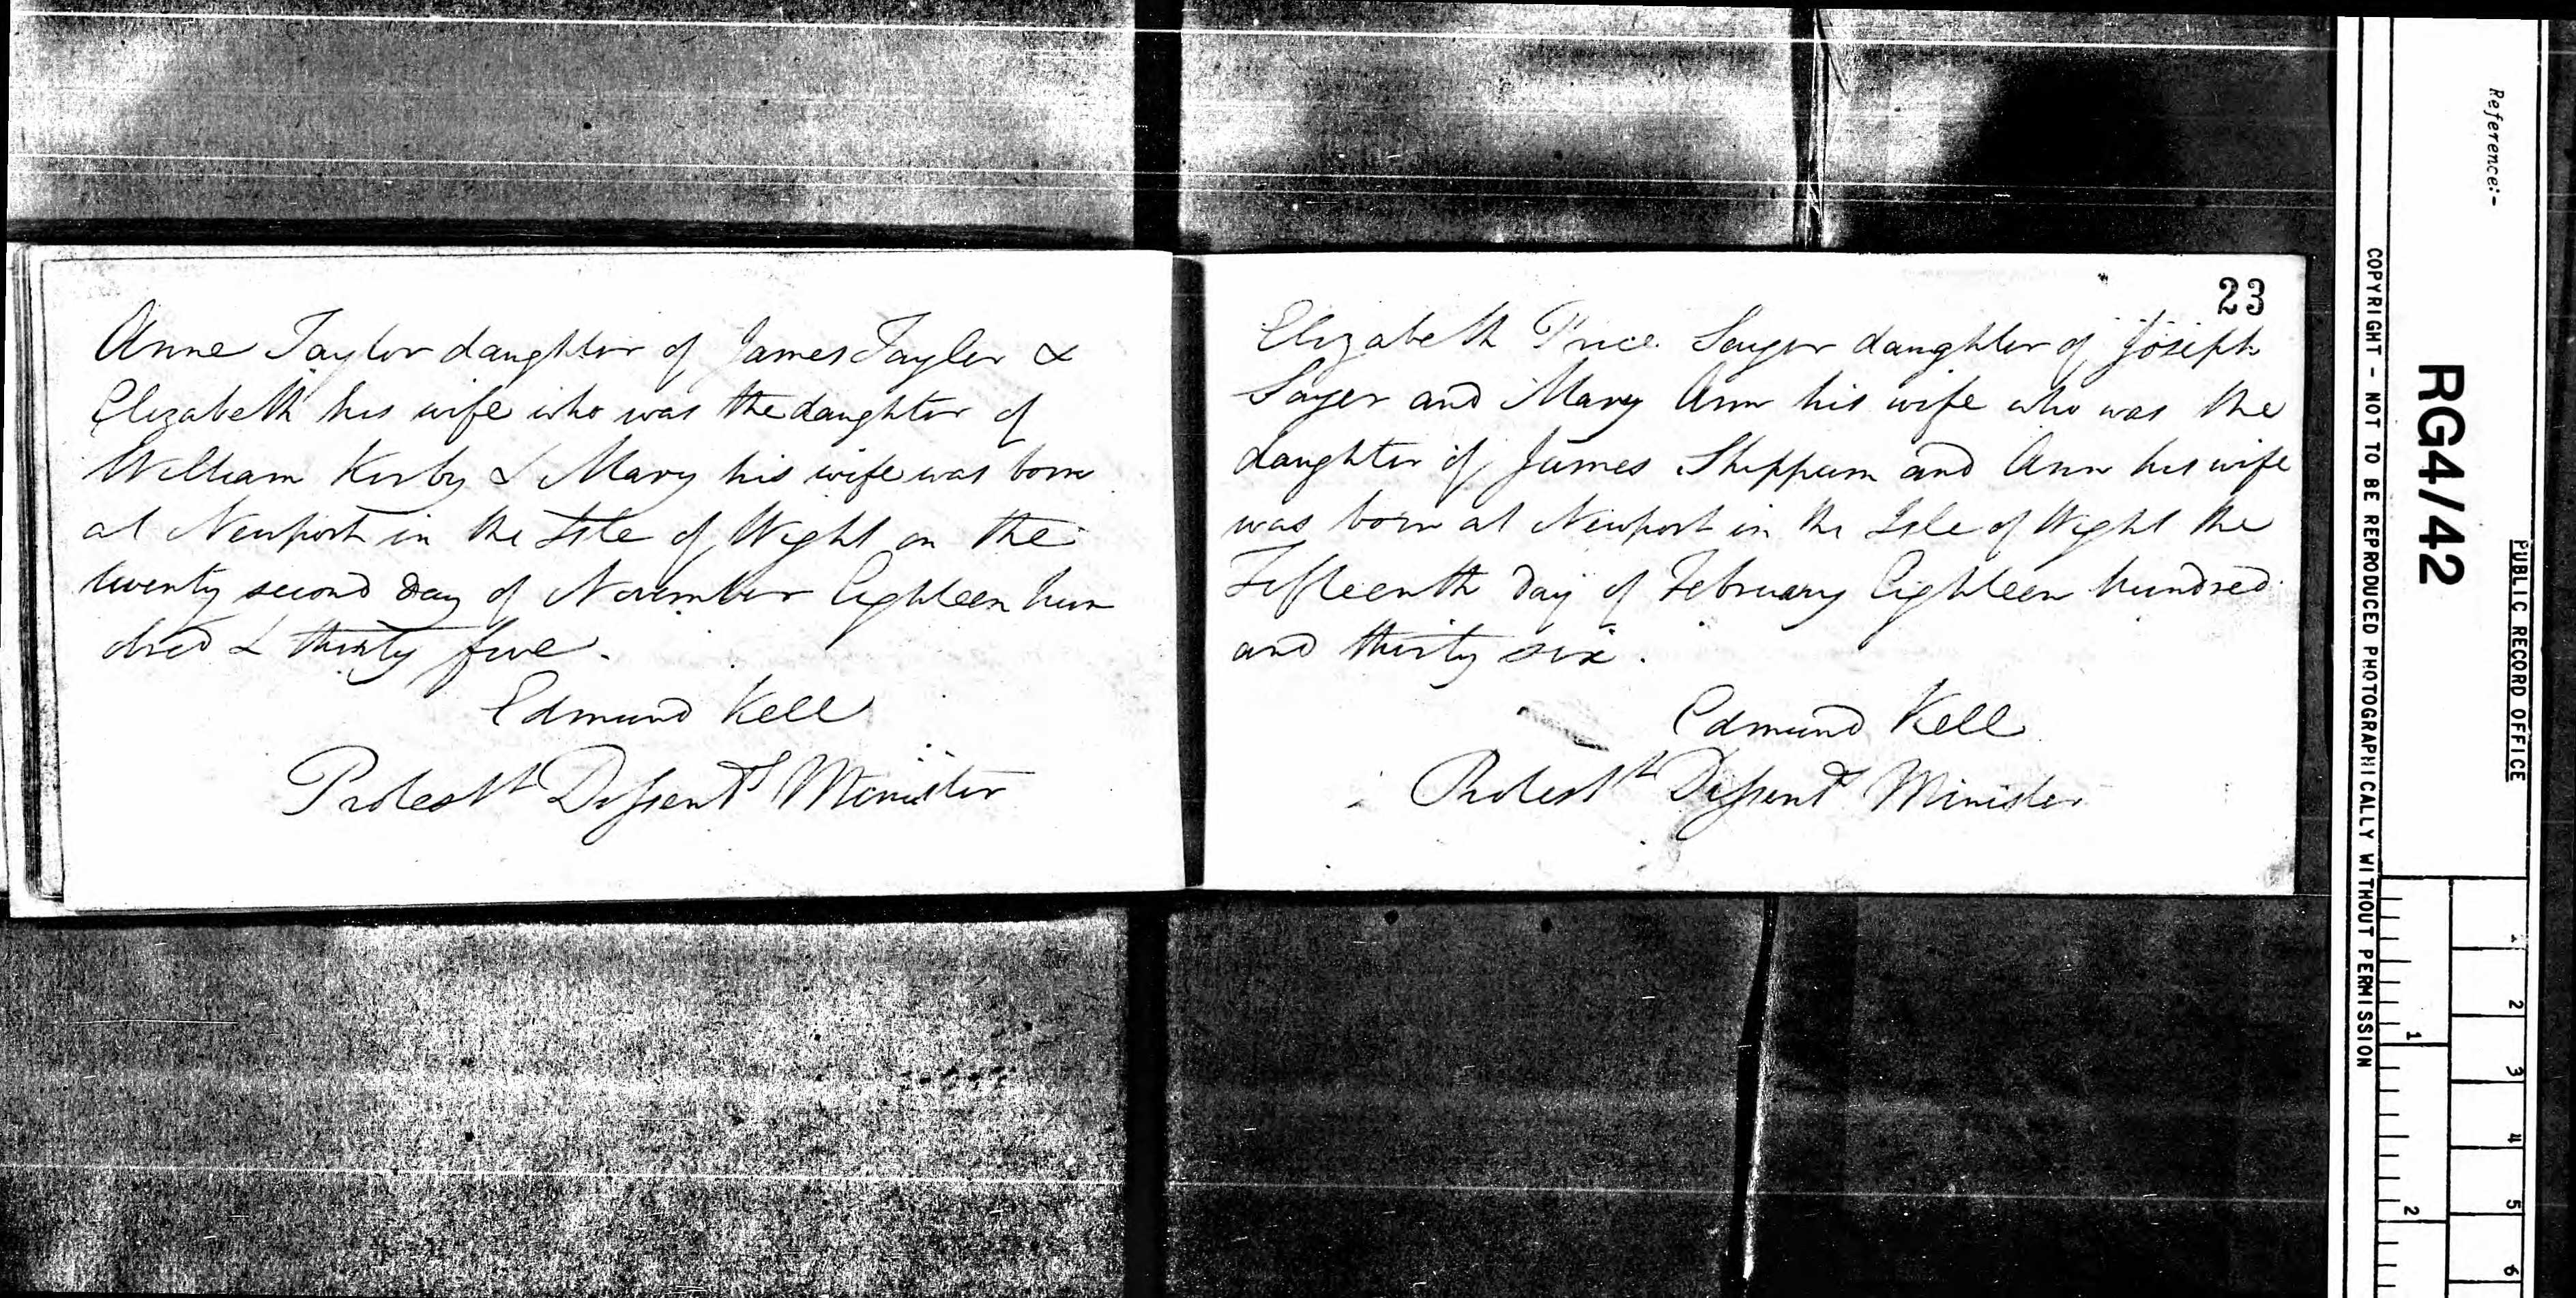 Anne Taylor daughter of James Tayler &
Elizabeth his wife who was the daughter of
William Kirby & Mary his wife was born
at Newport in the Isle of Wight on the
twenty second day of November Eighteen hun
dred & thirty five.
Edmund Kell
Protestt Dissentg Minister
23
Elizabeth Price Sayer daughter of Joseph
Sayer and Mary Ann his wife who was the
daughter of James Sheppum and Ann his wife
was born at Newport in the Isle of Wight the
Fifteenth day of February Eighteen hundred
and thirty six.
Edmund Kell
Protestt Dissentg Minister
Reference:-
RG4/42
PUBLIC RECORD OFFICE
COPYRIGHT - NOT TO BE REPRODUCED PHOTOGRAPHICALLY WITHOUT PERMISSION
1
2
3
4
5
6
1
2